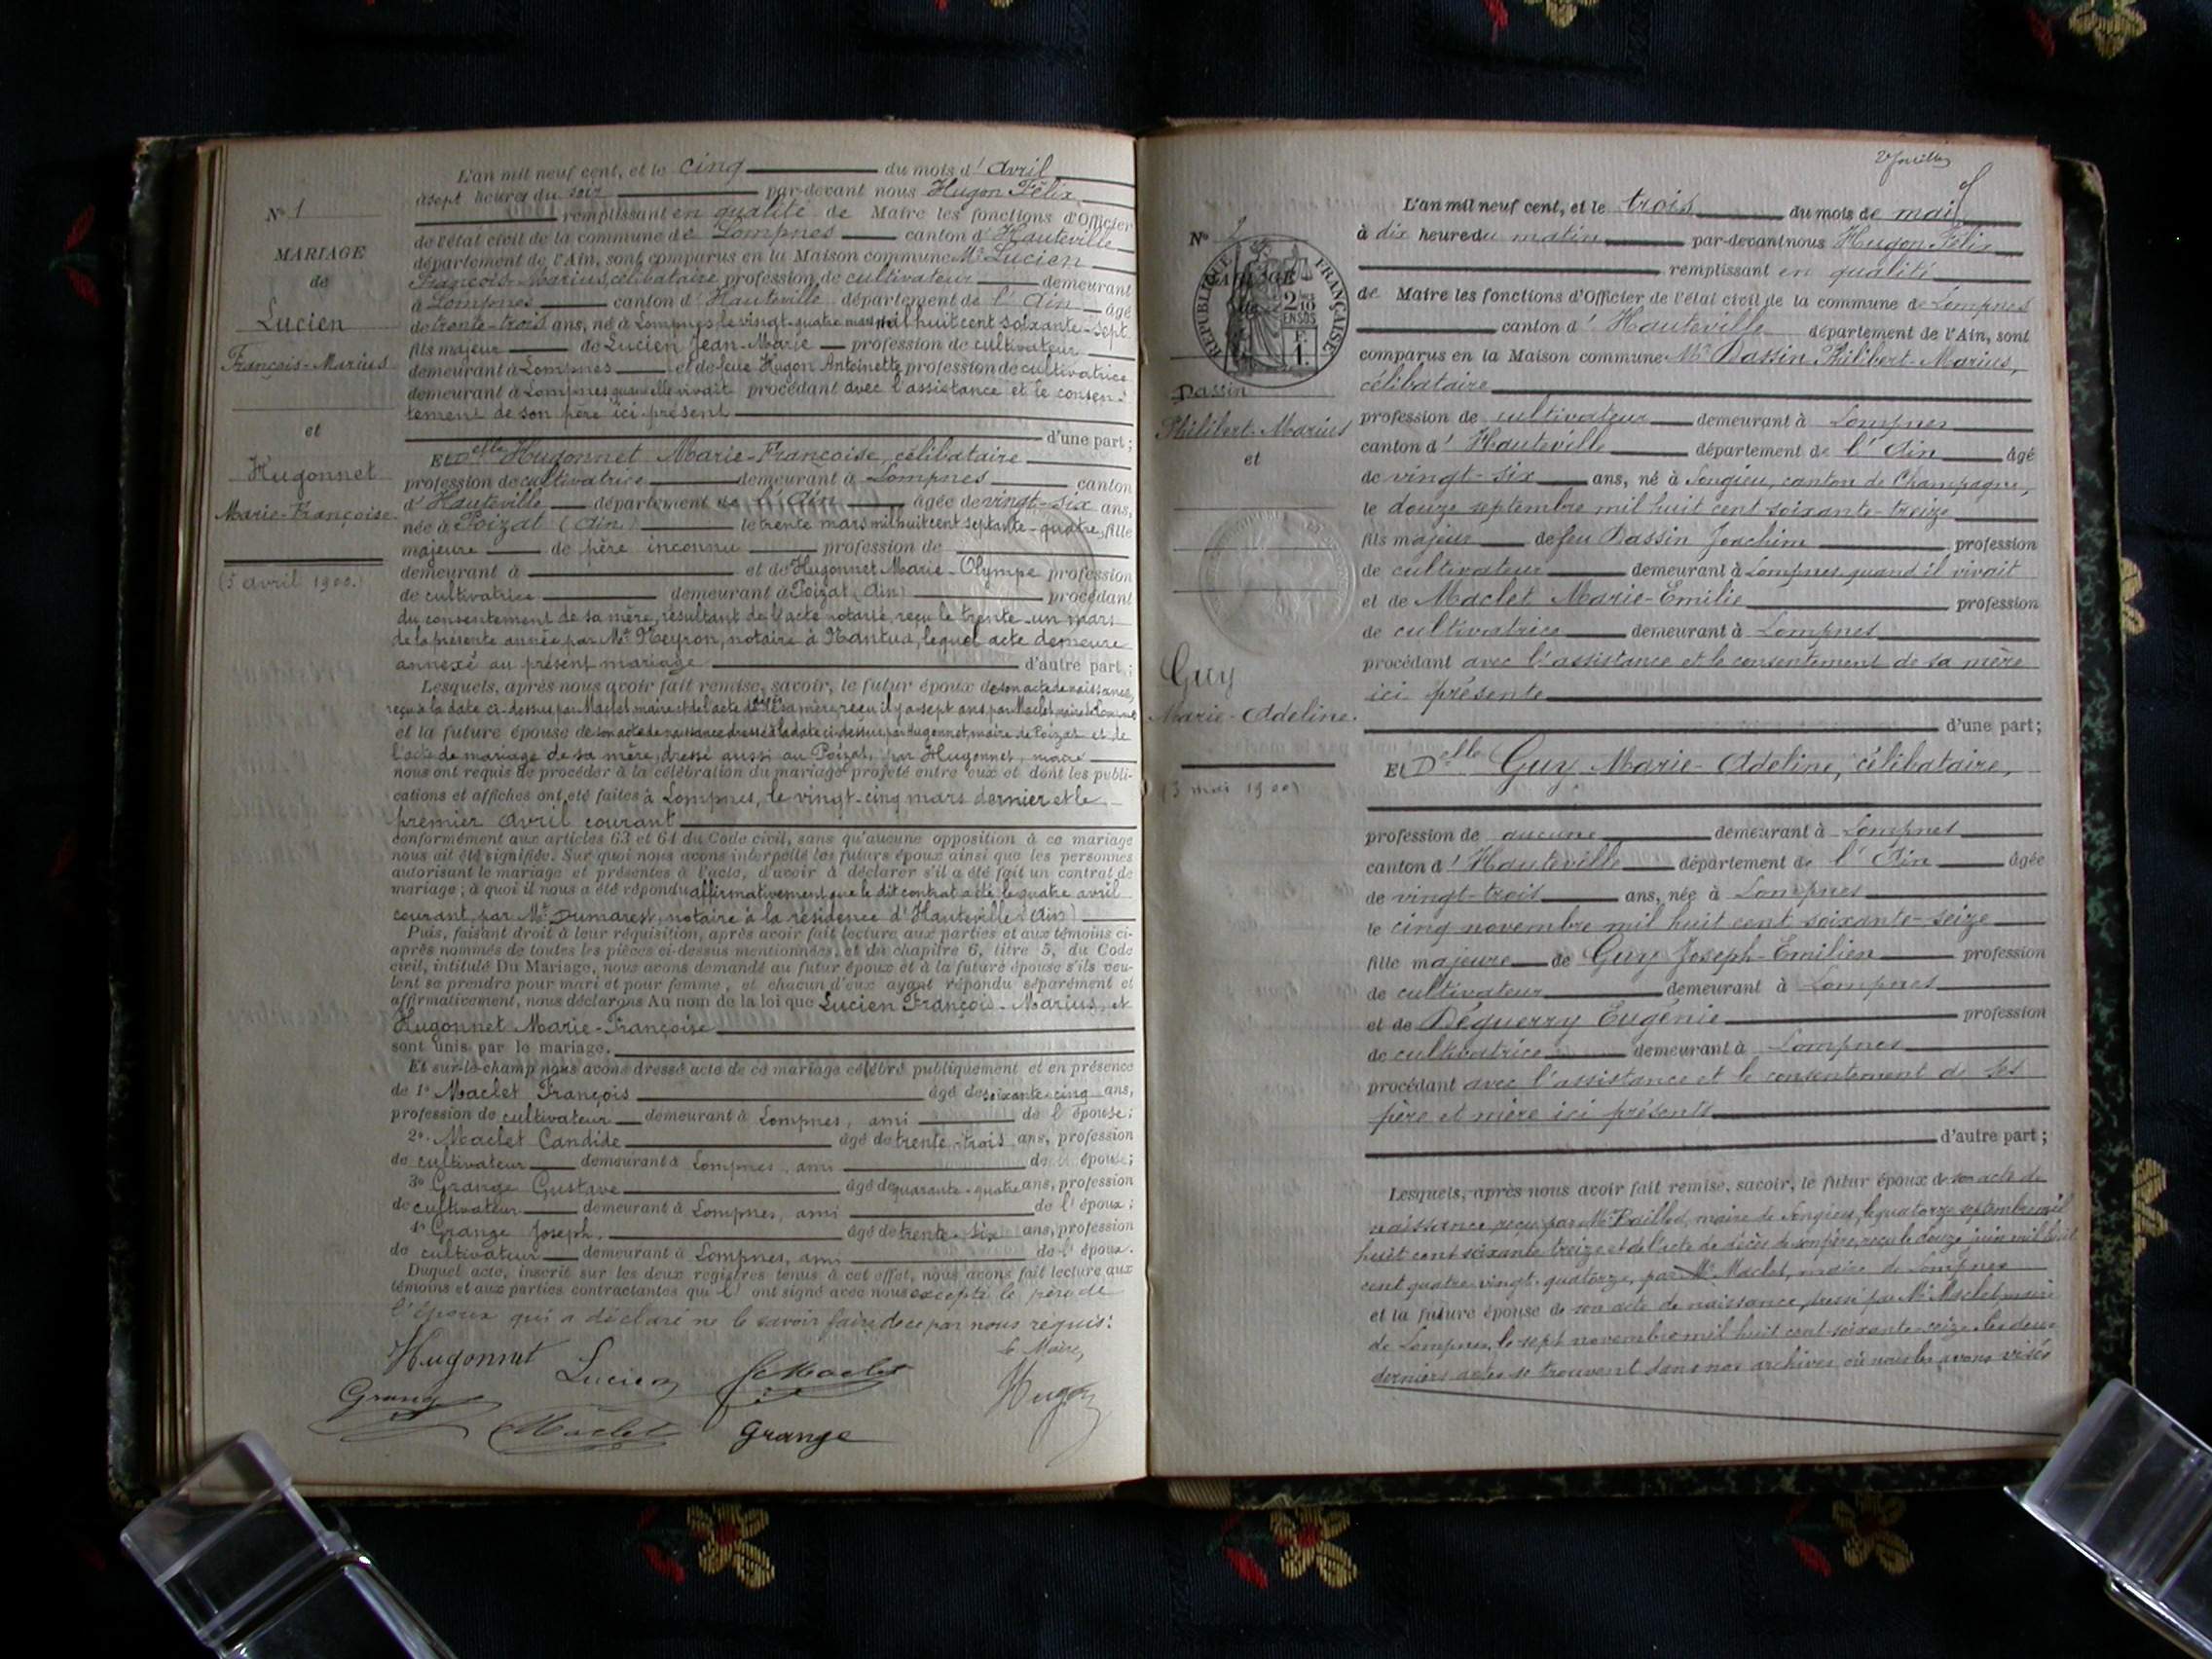 N° 1
MARIAGE
de
Lucien
François-Marius
et
Hugonnet
Marie-Françoise
(5 avril 1900.)
L'an mil neuf cent, et le cinq du mois d'Avril
à sept heures du soir par-devant nous Hugon Félix,
remplissant en qualité de Maire les fonctions d'Officier
de l'état civil de la commune de Lompnes canton d'Hauteville
département de l'Ain, sont comparus en la Maison commune Mr Lucien
François-Marius, célibataire profession de cultivateur demeurant
à Lompnes canton d'Hauteville département de l'Ain âgé
de trente-trois ans, né à Lompnes, le vingt-quatre mars mil huit cent soixante-sept
fils majeur de Lucien Jean-Marie profession de cultivateur
demeurant à Lompnes et de feue Hugon Antoinette profession de cultivatrice
demeurant à Lompnes quand elle vivait procédant avec l'assistance et le consen-
tement de son père ici présent
d'une part;
Et Delle Hugonnet Marie-Françoise, célibataire
profession de cultivatrice demeurant à Lompnes canton
d'Hauteville département de l'Ain âgée de vingt-six ans,
née à Poizat (Ain) le trente mars mil huit cent septante-quatre, fille
majeure de père inconnu profession de
demeurant à et de Hugonnet Marie-Olympe profession
de cultivatrice demeurant à Poizat (Ain) procédant
du consentement de sa mère, résultant de l'acte notarié, reçu le trente-un mars
de la présente année, par Me Neyron, notaire à Nantua, lequel acte demeure
annexé au présent mariage d'autre part;
Lesquels, après nous avoir fait remise, savoir, le futur époux de son acte de naissance,
reçu à la date ci-dessus par Maclet maire et de l'acte de décès de sa mère, reçu il y a sept ans, par Maclet maire de Lompnes
et la future épouse de son acte de naissance dressé à la date ci-dessus, par Hugonnet, maire de Poizat et de
l'acte de mariage de sa mère, dressé aussi au Poizat, par Hugonnet, maire
nous ont requis de procéder à la célébration du mariage projeté entre eux et dont les publi-
cations et affiches ont été faites à Lompnes, le vingt-cinq mars dernier et le
premier avril courant
conformément aux articles 63 et 64 du Code civil, sans qu'aucune opposition à ce mariage
nous ait été signifiée. Sur quoi nous avons interpellé les futurs époux ainsi que les personnes
autorisant le mariage et présentes à l'acte, d'avoir à déclarer s'il a été fait un contrat de
mariage; à quoi il nous a été répondu affirmativement que le dit contrat a été le quatre avril
courant, par Me Dumarest, notaire à la résidence d'Hauteville (Ain)
Puis, faisant droit à leur réquisition, après avoir fait lecture aux parties et aux témoins ci-
après nommés de toutes les pièces ci-dessus mentionnées, et du chapitre 6, titre 5, du Code
civil, intitulé Du Mariage, nous avons demandé au futur époux et à la future épouse s'ils veu-
lent se prendre pour mari et pour femme, et chacun d'eux ayant répondu séparément et
affirmativement, nous déclarons Au nom de la loi que Lucien François-Marius, et
Hugonnet Marie-Françoise
sont unis par le mariage.
Et sur-le-champ nous avons dressé acte de ce mariage célébré publiquement et en présence
de 1° Maclet François âgé de soixante-cinq ans,
profession de cultivateur demeurant à Lompnes, ami de l'épouse;
2° Maclet Candide âgé de trente-trois ans, profession
de cultivateur demeurant à Lompnes, ami de l'épouse;
3° Grange Gustave âgé de quarante-quatre ans, profession
de cultivateur demeurant à Lompnes, ami de l'époux;
4° Grange Joseph. âgé de trente-six ans, profession
de cultivateur demeurant à Lompnes, ami de l'époux.
Duquel acte, inscrit sur les deux registres tenus à cet effet, nous avons fait lecture aux
témoins et aux parties contractantes qui l'ont signé avec nous excepté le père de
l'époux qui a déclaré ne le savoir faire de ce par nous requis.
Hugonnet Lucien Maclet Le Maire,
Grange Maclet Grange Hugon
N° 2
RÉPUBLIQUE FRANÇAISE
MARIAGE
de
2/10 EN SUS
Dassin
Philibert-Marius
et
Guy
Marie-Adeline.
(3 mai 1900)
L'an mil neuf cent, et le trois du mois de mai
à dix heures du matin par-devant nous Hugon Félix
remplissant en qualité
de Maire les fonctions d'Officier de l'état civil de la commune de Lompnes
canton d'Hauteville département de l'Ain, sont
comparus en la Maison commune Mr Dassin Philibert-Marius,
célibataire
profession de cultivateur demeurant à Lompnes
canton d'Hauteville département de l'Ain âgé
de vingt-six ans, né à Songieu, canton de Champagne,
le douze septembre mil huit cent soixante-treize
fils majeur de feu Dassin Joachim profession
de cultivateur demeurant à Lompnes quand il vivait
et de Maclet Marie-Emilie profession
de cultivatrice demeurant à Lompnes
procédant avec l'assistance et le consentement de sa mère
ici présente
d'une part;
Et Delle Guy Marie-Adeline, célibataire,
profession de aucune demeurant à Lompnes
canton d'Hauteville département de l'Ain âgée
de vingt-trois ans, née à Lompnes
le cinq novembre mil huit cent soixante-seize
fille majeure de Guy Joseph-Emilien profession
de cultivateur demeurant à Lompnes
et de Déguerry Eugénie profession
de cultivatrice demeurant à Lompnes
procédant avec l'assistance et le consentement de ses
père et mère ici présents
d'autre part;
Lesquels, après nous avoir fait remise, savoir, le futur époux de son acte de
naissance reçu par Mr Baillod, maire de Songieu, le quatorze septembre mil
huit cent soixante treize et de l'acte de décès de son père, reçu le douze juin mil huit
cent quatre-vingt-quatorze, par Mr Maclet, maire de Lompnes
et la future épouse de son acte de naissance, dressé par Mr Maclet maire
de Lompnes, le sept novembre mil huit cent soixante-seize. Les deux
derniers actes se trouvent dans nos archives où nous les avons visés